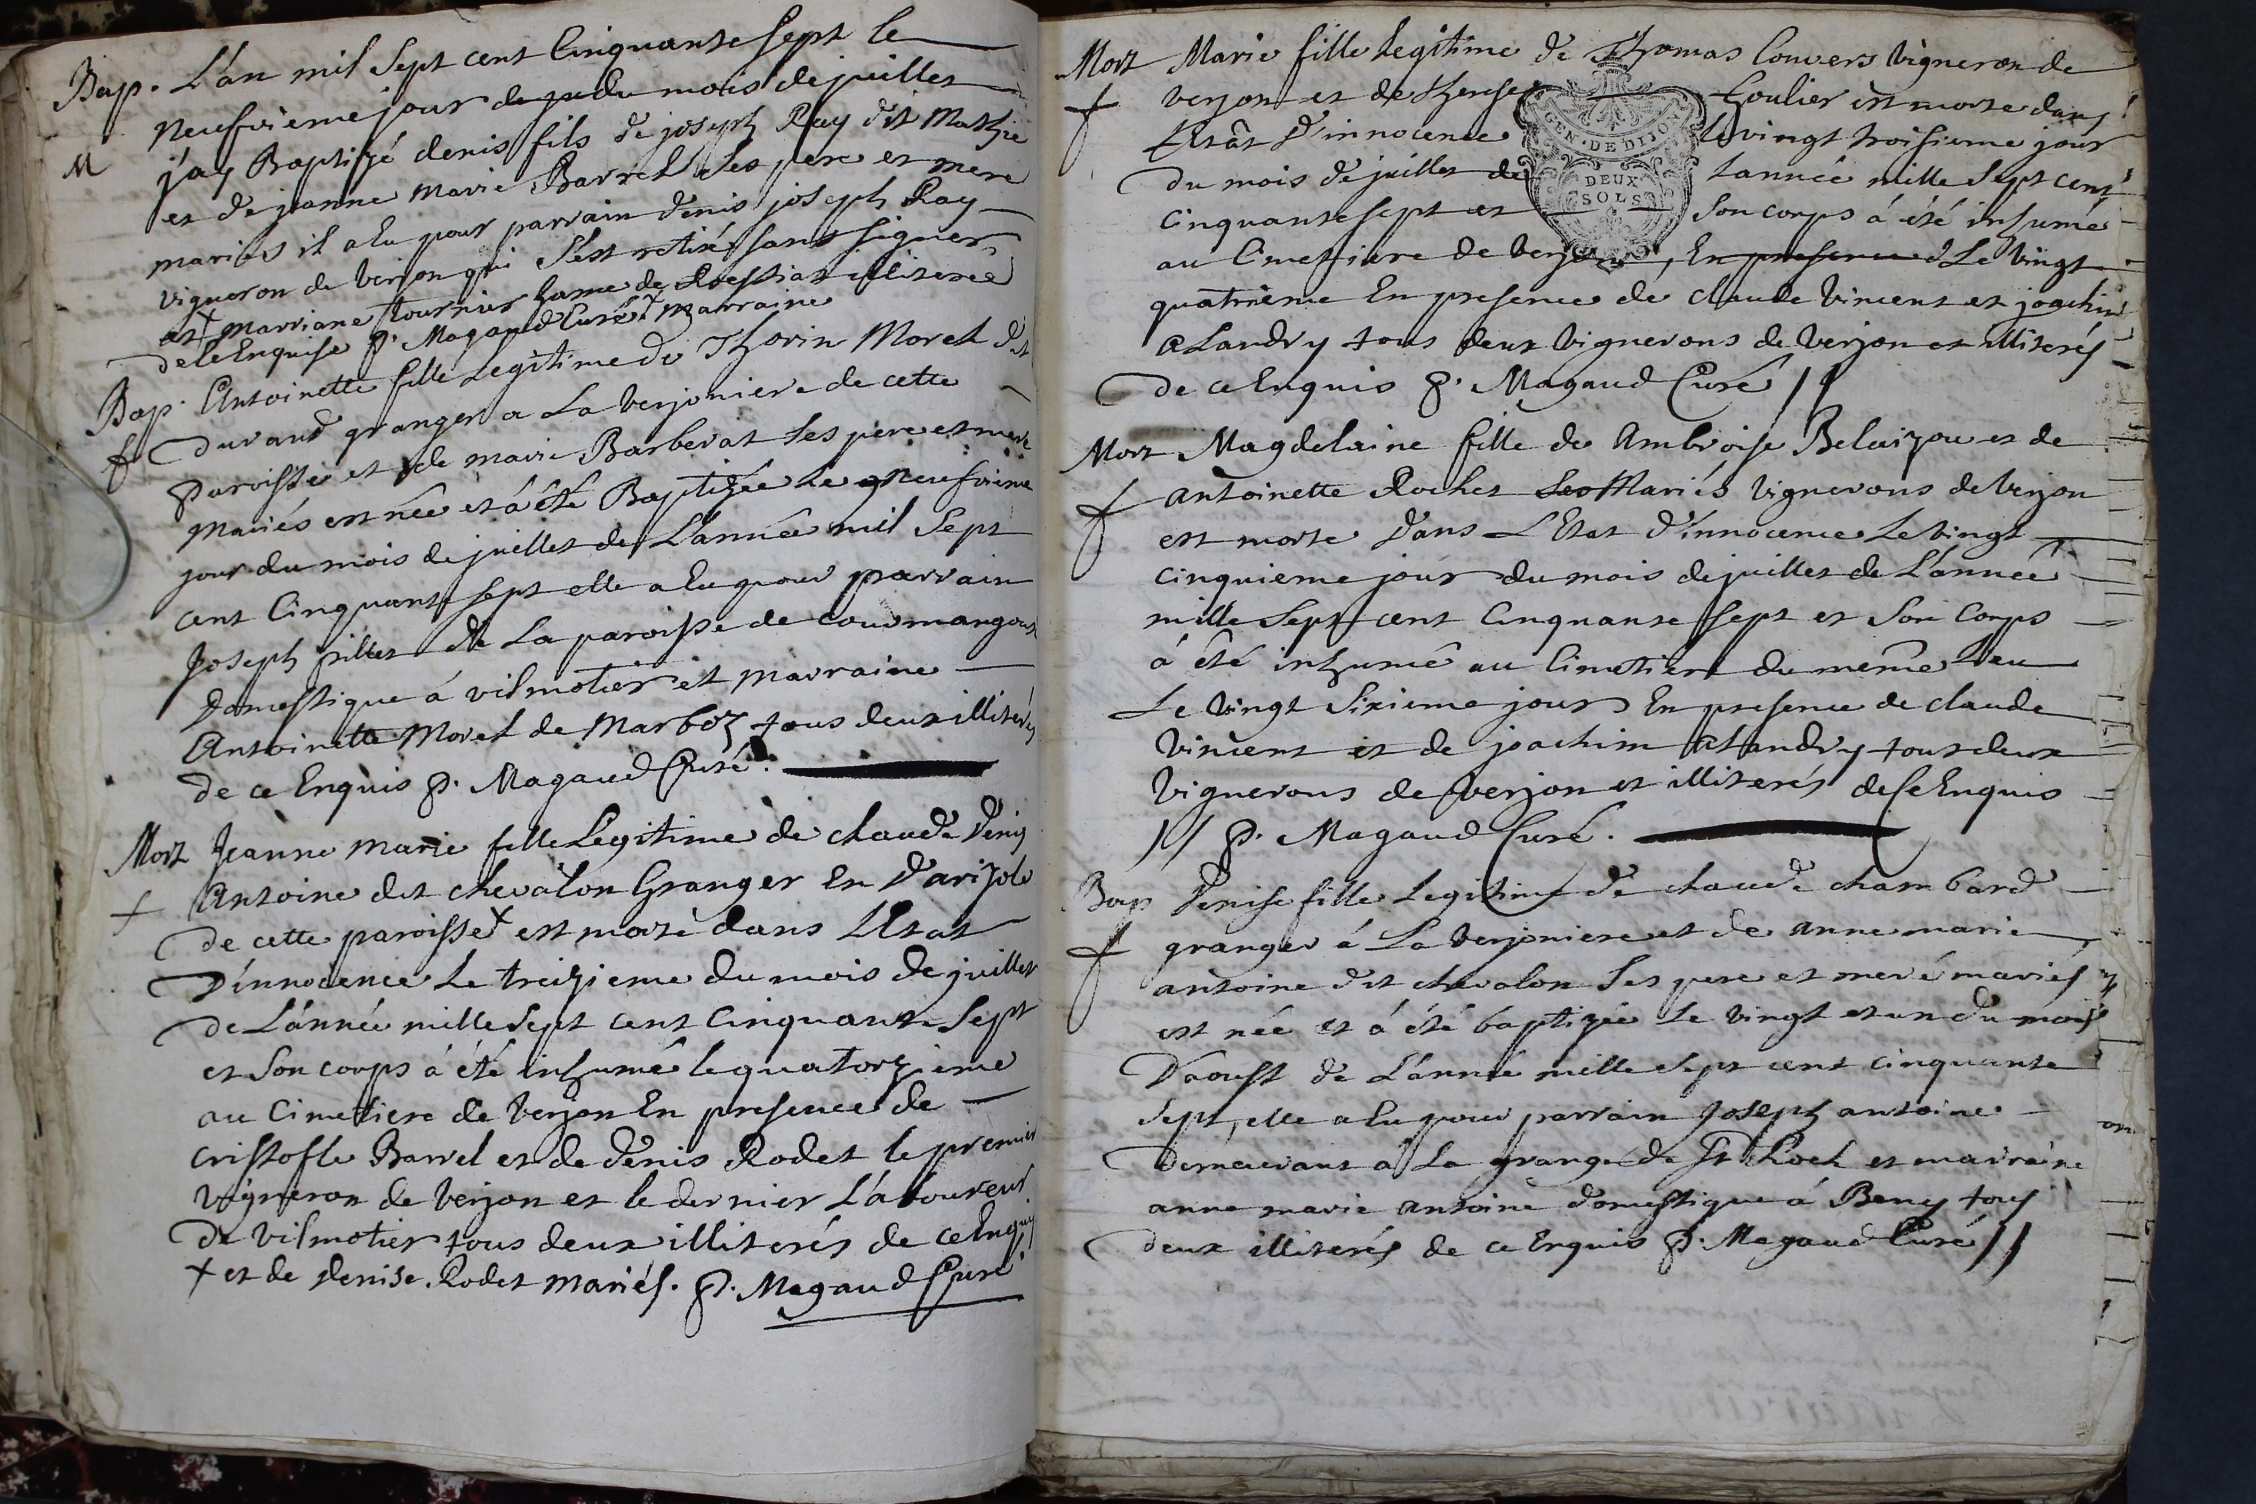 Bap. L'an mil Sept cent Cinquante Sept le
neufvieme jour du mois de juillet
M j'ay Baptizé denis fils de joseph Ray dit Mathie
et de jeanne marie Barrel Ses pere et mere
mariés il a Eu pour parrain denis joseph Ray
vigneron de verjon qui S'est retiré sans signer
et + marriane tournier fame de Roestiat illiterée
de ce Enquise P. Magaud Curé + marraine
Bap. Antoinette fille Legitime de Thorin Morel dit
f Durand granger a La verjoniere de cette
paroisse et de marie Barberat Ses pere et mere
mariés est née et á été Baptizée Le neufvieme
jour du mois de juillet de L'année mil Sept
cent Cinquante Sept elle a Eu pour parrain
Joseph pillet de La paroisse de courmangoux
Domestique á vilmotier et marraine
Antoinette Morel de Marboz tous deux illiterés
de ce Enquis P. Magaud Curé.
Mort Jeanne marie fille Legitime de claude denis
+ Antoine dit chevalon Granger En Darizole
de cette paroisse + est morte dans L'Etat
D'innocence Le treizieme du mois de juillet
de L'année mille Sept cent Cinquante Sept
et Son corps á été inhumé le quatorzieme
au Cimetiere de verjon En presence de
cristofle Barrel et de denis Rodet le premier
vigneron de verjon et le dernier L'aboureur
de vilmotier tous deux illiterés de ce Enquis
+ et de denise Rodet mariés. P. Magaud Curé
Mort Marie fille Legitime de Thomas Convers vigneron de
f verjon et de therese Goulier est morte dans
L'Etat D'innocence le vingt troisieme jour
GEN. DE DIJON
DEUX
SOLS
du mois de juillet de L'année mille Sept cent
cinquante Sept et Son corps á été inhumé
au Cimetiere de verjon, En presence d Le vingt
quatrieme En presence de claude vincent et joachim
a Landry tous deux vignerons de verjon et illiterés
de ce Enquis P. Magaud Curé //
Mort Magdelaine fille de Ambroise Belaizou et de
f antoinette Rochet Mariés vignerons de verjon
est morte Dans L'Etat d'innocence Le vingt
cinquieme jour du mois de juillet de L'année
mille Sept cent Cinquante Sept et Son Corps
á été inhumé au Cimetiere du même Lieu
Le vingt Sixieme jour En presence de claude
vincent et de joachim a Landry tout deux
vignerons de verjon et illiterés de ce Enquis
// P. Magaud Curé.
Bap Denise fille Legitime de claude chambard
f granger á La verjoniere et de anne marie
antoine dit chevalon Ses pere et mere mariés
est née et á été baptizée Le vingt et un du mois
D'aoust de L'année mille Sept cent cinquante
Sept, elle a Eu pour parrain Joseph antoine
Demeurant á La grange de St Roch et marraine
anne marie antoine domestique á Beny tous
deux illiterés de ce Enquis P. Magaud Curé //